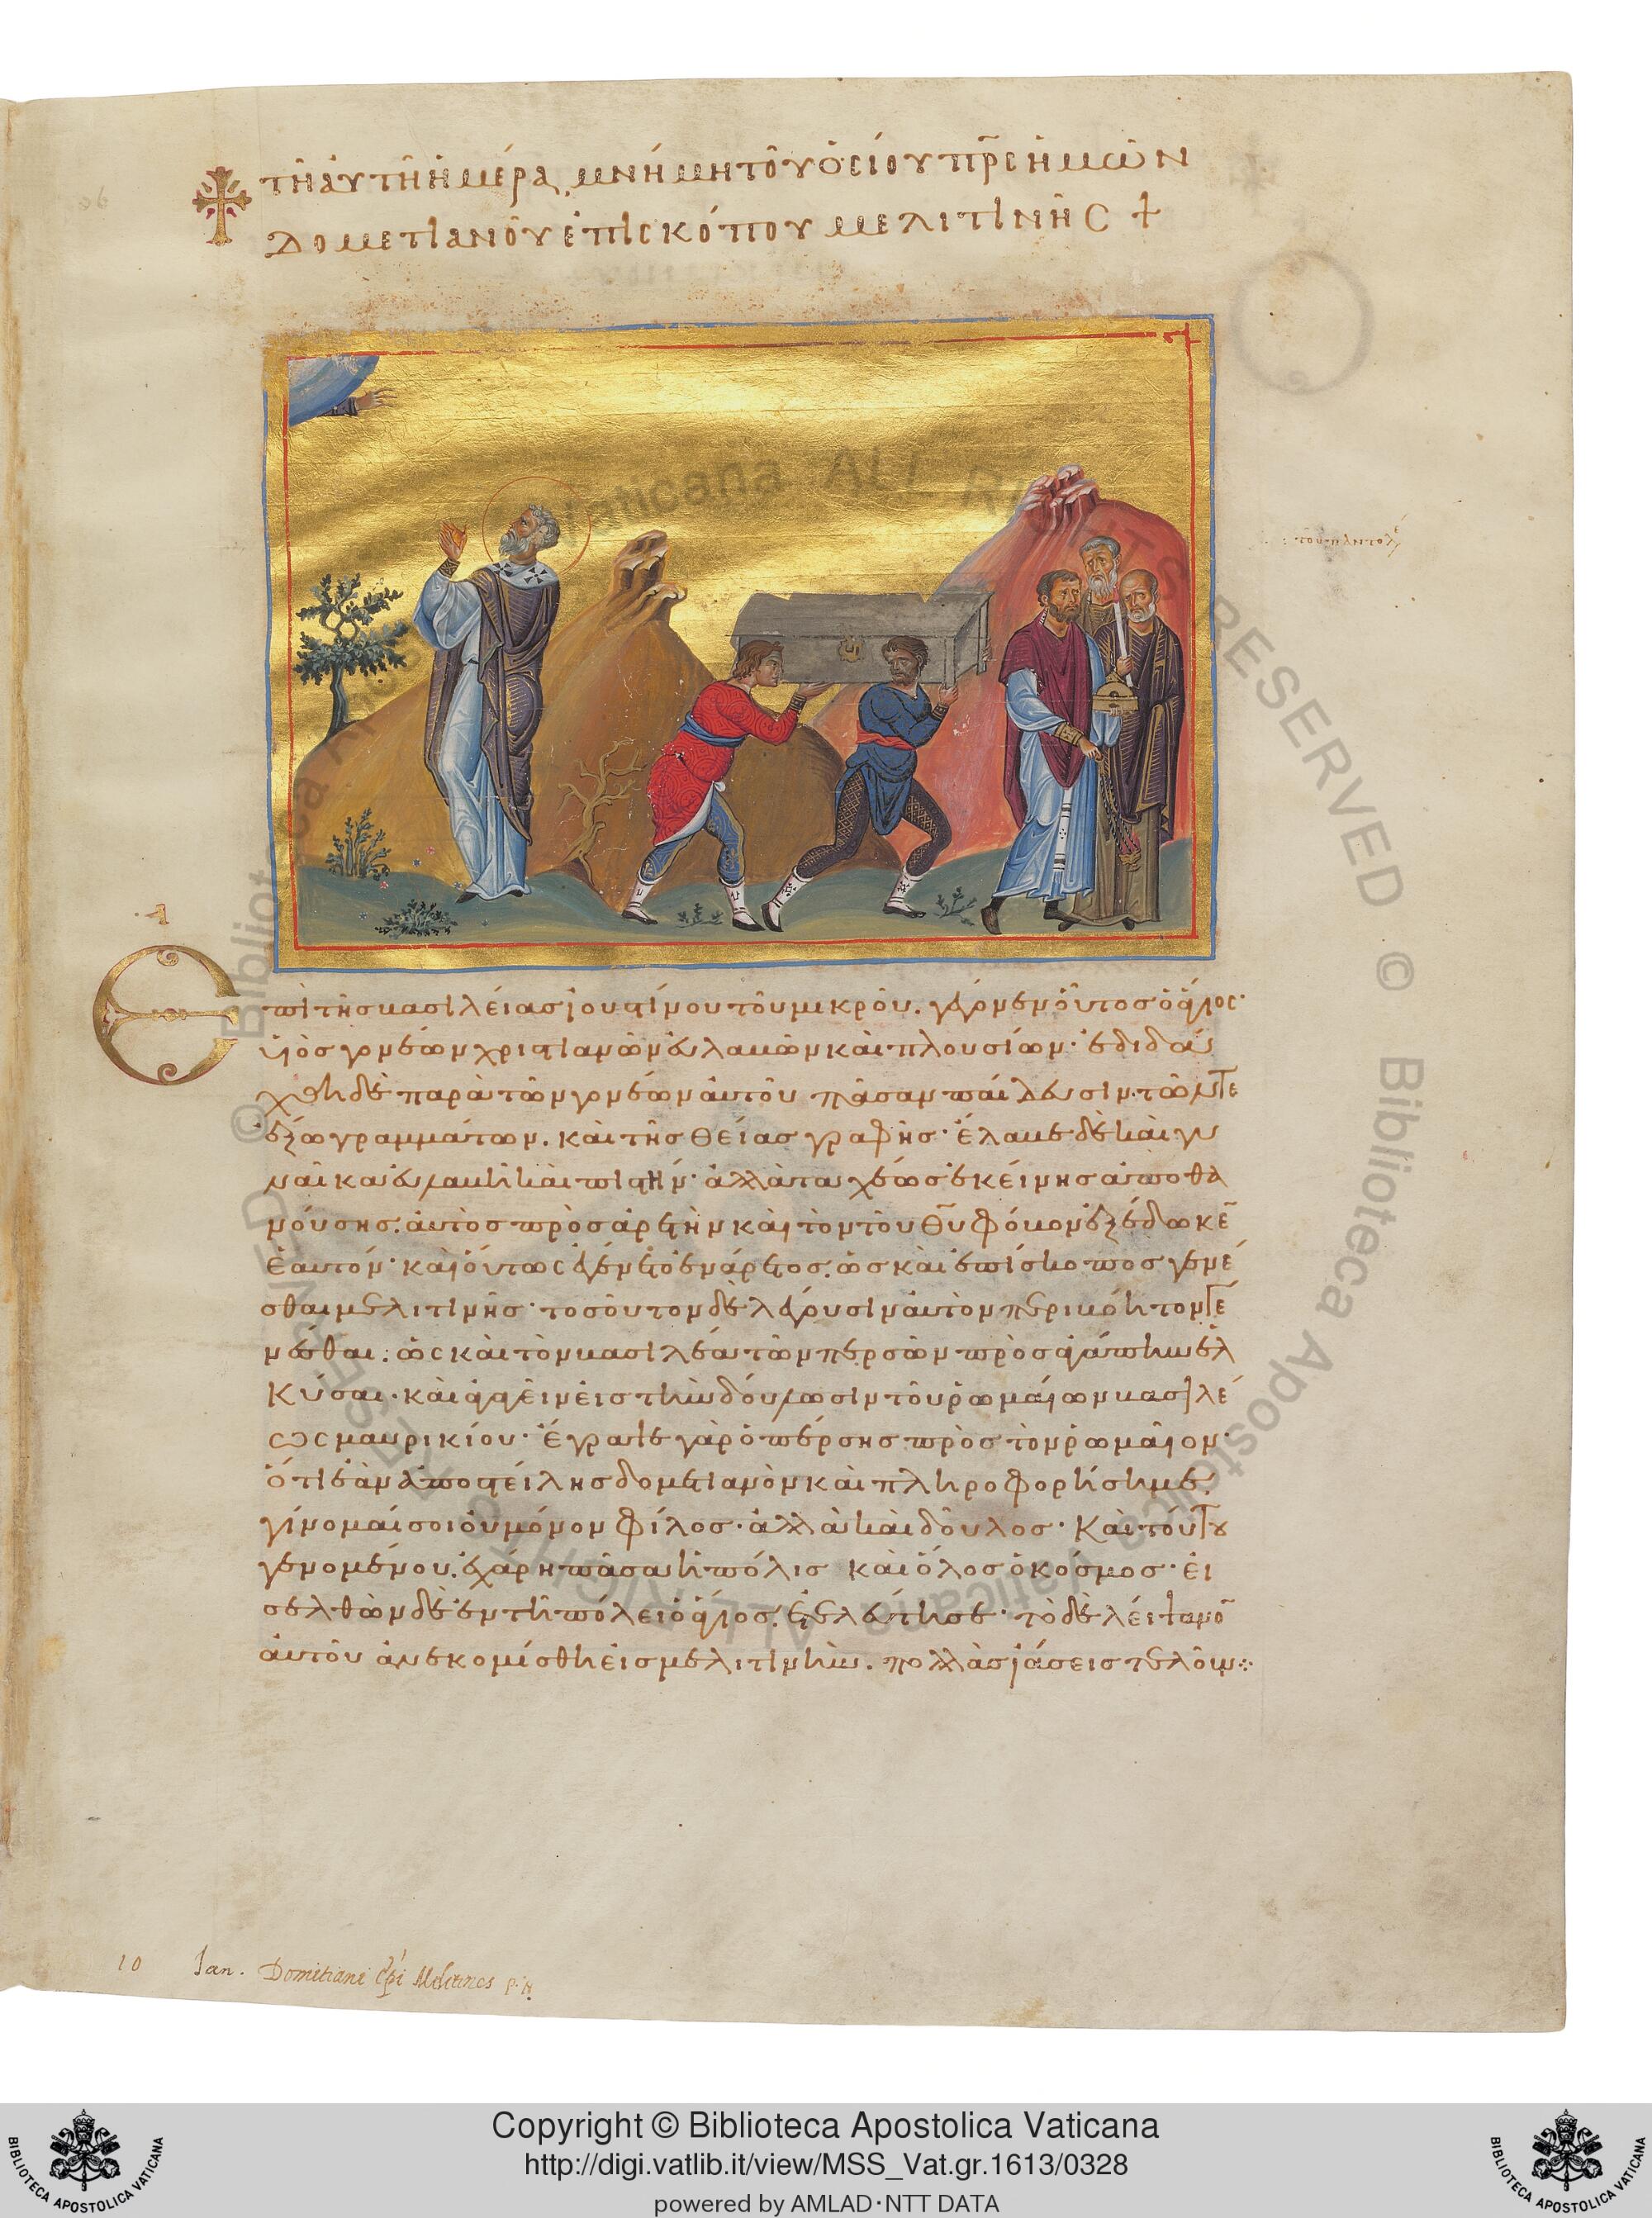 τῆ αὐτῆ ἡμέρα, μνήμη τοῦ ὁσίου πρ̅ς ἡμῶν
Δομετιανοῦ ἐπισκόπου μελιτινῆς +
του κηδητου
·Α
Επὶ τῆς βασιλείας ἰουστίνου τοῦ μικροῦ. γέγονεν οὗτος ὁ ἅγιος·
υἱὸς γονέων χριστιανῶν εὐλαβῶν καὶ πλουσίων· ἐδιδά
χθη δὲ παρὰ τῶν γονέων αὐτοῦ πᾶσαν παίδευσιν. τῶν τε
ἔξω γραμμάτων. καὶ τῆς θείας γραφῆς· ἔλαβε δὲ καὶ γυ
ναῖκα εὐλαβῆ καὶ πιστήν· ἀλλὰ ταχέως ἐκείνης ἀποθα
νούσης. αὐτὸς πρὸς ἀρετὴν καὶ τὸν τοῦ θ̅υ φόβον ἐξέδωκε̅
ἑαυτόν· καὶ οὕτως ἐγένετο ἐνάρετος. ὡς καὶ ἐπίσκοπος γενέ
σθαι μελιτινῆς· τοσοῦτον δὲ λέγουσιν αὐτὸν περιβόητον γε
νέσθαι. ὡς καὶ τὸν βασιλέα τῶν περσῶν πρὸς ἀγάπην ἑλ
κύσαι· καὶ ἀγαγεῖν εἰς τὴν δούλωσιν τοῦ ῥωμαίων βασιλέ
ως μαυρικίου· ἔγραψε γὰρ ὁ πέρσης πρὸς τὸν ῥωμαῖον·
ὅτι ἐὰν ἀποστείλης δομετιανὸν καὶ πληροφορήση με.
γίνομαί σοι οὐ μόνον φίλος· ἀλλὰ καὶ δοῦλος· καὶ τούτου
γενομένου. ἐχάρη πᾶσα ἡ πόλις καὶ ὅλος ὁ κόσμος· εἰ
σελθὼν δὲ ἐν τῆ πόλει ὁ ἅγιος. ἐτελεύτησε· τὸ δὲ λείψανο̅
αὐτοῦ ἀνεκομίσθη εἰς μελιτινὴν. πολλὰς ἰάσεις τελοῦν·:·
10 Ian. Domitiani ep̅i Melitines P. N.
Copyright © Biblioteca Apostolica Vaticana
http://digi.vatlib.it/view/MSS_Vat.gr.1613/0328
powered by AMLAD·NTT DATA
BIBLIOTECA APOSTOLICA VATICANA
BIBLIOTECA APOSTOLICA VATICANA
© Biblioteca Apostolica Vaticana ALL RIGHTS RESERVED © Biblioteca Apostolica Vaticana ALL RIGHTS RESERVED